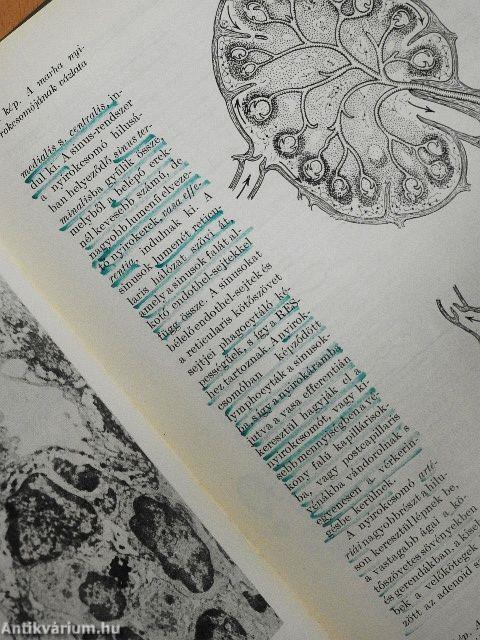 kép. A marha nyi-
rokcsomójának vázlata
medialis s. centralis, in-
dul ki. A sinus-rendszer
a nyirokcsomó hilusá-
ban helyeződő sinus ter-
minalisba gyűlik össze,
melyből a belépő erek-
nél kevesebb számú, de
nagyobb lumenű elveze-
tő nyirokerek, vasa effe-
rentia, indulnak ki. A
sinusok lumenét reticu-
laris hálózat szövi át,
amely a sinusok falát al-
kotó endothel-sejtekkel
függ össze. A sinusokat
bélelő endothel-sejtek és
a reticularis kötőszövet
sejtjei, phagocytáló ké-
pességűek, s így a RES-
hez tartoznak. A nyirok-
csomóban képződött
lymphocyták a sinusok-
ba, s így a nyirokáramba
jutva a vasa efferentián
keresztül hagyják el a
nyirokcsomót, vagy ki-
sebb mennyiségben a vé-
kony falú kapillárisok-
ba, vagy postcapillaris
vénákba vándorolnak s
egyenesen a vérkerin-
gésbe kerülnek.
A nyirokcsomó arté-
riái nagyobbrészt a hilu-
son keresztül lépnek be,
a vastagabb ágai a kö-
tőszövetes sövényekben
és gerendákban, a kiseb-
bek a velőkötegek
zött az adenoid
kép. A
Antikvárium.hu